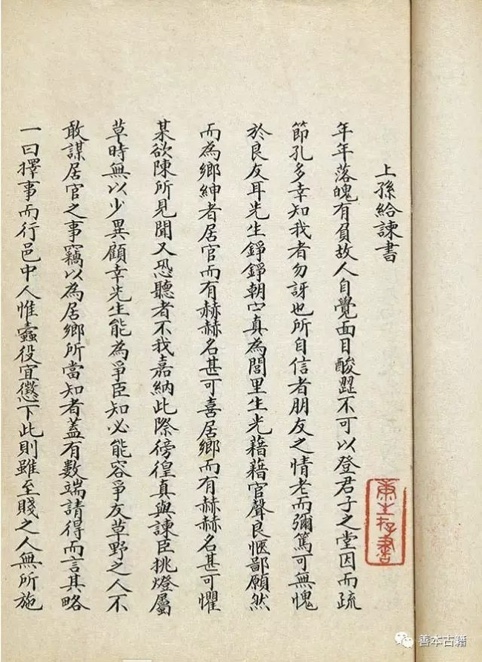 上孫給諫書
年年落魄有負故人自覺面目酸澀不可以登君子之堂因而疏
節孔多幸知我者勿訝也所自信者朋友之情老而彌篤可無愧
於良友耳先生錚錚朝宁真為閭里生光藉藉官聲良愜鄙願然
而為鄉紳者居官而有赫赫名甚可喜居鄉而有赫赫名甚可懼
某欲陳所見聞又恐聽者不我嘉納此際徬徨真與諫臣挑燈屬
草時無以少異顧幸先生能為爭臣知必能容爭友草野之人不
敢謀居官之事竊以為居鄉所當知者蓋有數端請得而言其略
一曰擇事而行邑中人惟蠹役宜懲下此則雖至賤之人無所施
善本古籍